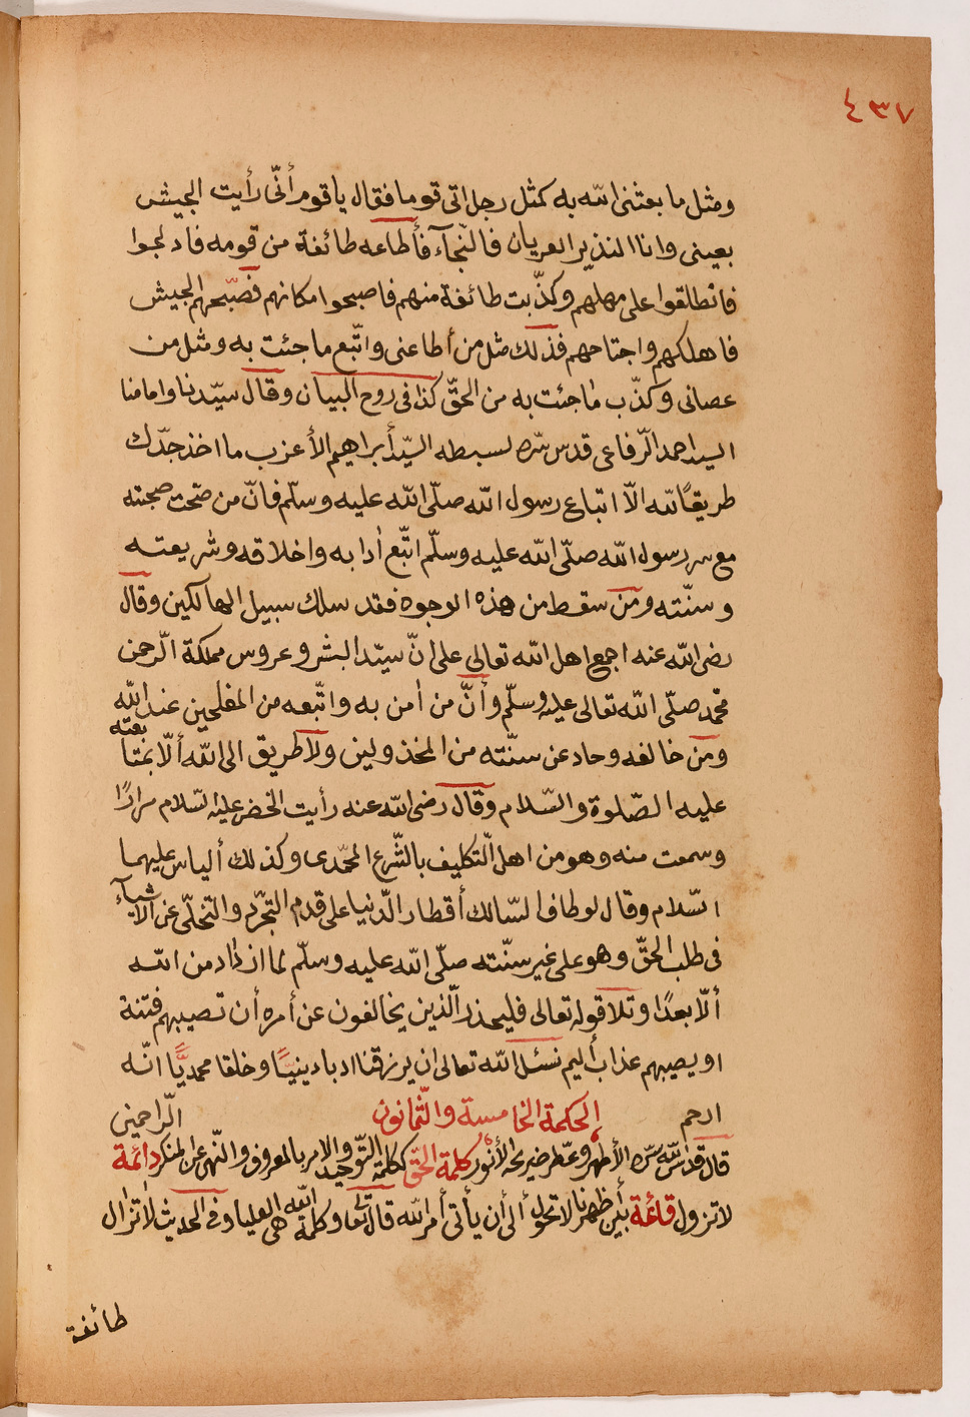 ٤٣٧
ومثل ما بعثنى الله به كمثل رجل اتى قوما فقال ياقوم أنّى رأيت الجيش
بعينى وانا النذير العريان فالنّجآء فأطاعه طائفة من قومه فادلجوا
فانطلقوا على مهلهم وكذّبت طائفة منهم فاصبحوا مكانهم فصبّحهم الجيش
فاهلكهم واجتاحهم فذلك مثل من أطاعنى واتّبع ما جئت به ومثل من
عصانى وكذّب ما جئت به من الحقّ كذا فى روح البيان وقال سيّدنا وامامنا
السيد احمد الرّفاعى قدس سّره لسبطه السيّد أبراهيم الأعزب ما اخذ جدّك
طريقًا لله الّا اتباع رسول الله صلّى الله عليه وسلّم فانّ من صّحت صحبته
مع سر رسول الله صلّى الله عليه وسلّم اتّبع أدابه واخلاقه وشريعته
وسنّته ومن سقط من هذه الوجوه فقد سلك سبيل الهالكين وقال
رضى الله عنه اجمع اهل الله تعالى على انّ سيّد البشر وعروس مملكة الّرحمن
محّمد صلّى الله تعالى عليه وسلّم وأنّ من أمن به واتّبعه من المفلحين عند الله
ومن خالفه وحاد عن سنّته من المخذولين ولا طريق الى الله ألّا بمتابعته
عليه الصّلوة والسّلام وقال رضى الله عنه رأيت الخضر عليه السّلام مرارًا
وسمعت منه وهو من اهل الّتكليف بالشّرع المحّمدى وكذلك ألياس عليهما
السّلام وقال لو طاف السّالك أقطار الّدنيا على قدم التجّرد والتخلّى عن الأشيآء
فى طلب الحقّ وهو على غير سنّته صلّى الله عليه وسلّم لما ازداد من الله
ألّا بعدًا وتلا قوله تعالى فليحذر الّذين يخالفون عن أمره أن تصيبهم فتنة
او يصيبهم عذاب أليم نسئل الله تعالى ان يرزقنا ادبا دينيًّا وخلقا محمديًّا انّه
ارحم الحكمة الخامسة والّثمانون الّراحمين
قال قدس الله سّره الأطهر وعّطر ضريحه الأنور كلمة الحقّ ككلمة الّتوحيد والامر بالمعروف والنّهى عن المنكر دائمة
لا تزول قائمة بين أظهرنا لا تحول ألى أن يأتى أمر الله قال تعا وكلمة الله هى العليا وفى الحديث لا تزال
طائفة